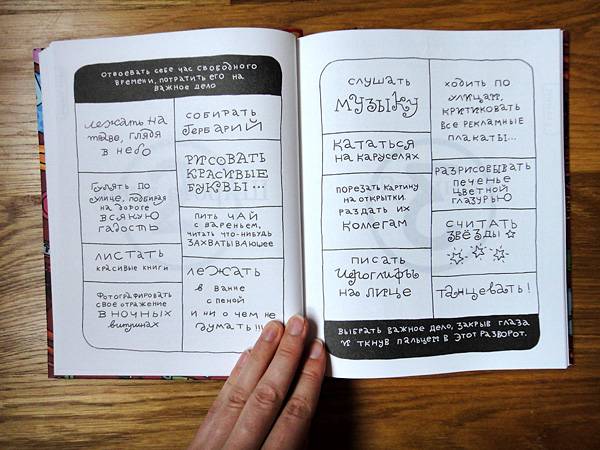 ОТВОЕВАТЬ СЕБЕ ЧАС СВОБОДНОГО
ВРЕМЕНИ, ПОТРАТИТЬ ЕГО НА
ВАЖНОЕ ДЕЛО
ЛЕЖАТЬ НА
ТРАВЕ, ГЛЯДЯ
В НЕБО
ГУЛЯТЬ ПО
УЛИЦЕ, ПОДБИРАЯ
НА ДОРОГЕ
ВСЯКУЮ
ГАДОСТЬ
ЛИСТАТЬ
КРАСИВЫЕ КНИГИ
ФОТОГРАФИРОВАТЬ
СВОЕ ОТРАЖЕНИЕ
В НОЧНЫХ
ВИТРИНАХ
СОБИРАТЬ
ГЕРБАРИЙ
РИСОВАТЬ
КРАСИВЫЕ
БУКВЫ...
ПИТЬ ЧАЙ
С ВАРЕНЬЕМ,
ЧИТАТЬ ЧТО-НИБУДЬ
ЗАХВАТЫВАЮЩЕЕ
ЛЕЖАТЬ
В ВАННЕ
С ПЕНОЙ
И НИ О ЧЕМ НЕ
ДУМАТЬ!!!
СЛУШАТЬ
МУЗЫКУ
КАТАТЬСЯ
НА КАРУСЕЛЯХ
ПОРЕЗАТЬ КАРТИНУ
НА ОТКРЫТКИ.
РАЗДАТЬ ИХ
КОЛЛЕГАМ
ПИСАТЬ
ИЕРОГЛИФЫ
НА ЛИЦЕ
ХОДИТЬ ПО
УЛИЦАМ,
КРИТИКОВАТЬ
ВСЕ РЕКЛАМНЫЕ
ПЛАКАТЫ...
РАЗРИСОВЫВАТЬ
ПЕЧЕНЬЕ
ЦВЕТНОЙ
ГЛАЗУРЬЮ
СЧИТАТЬ
ЗВЁЗДЫ
ТАНЦЕВАТЬ!
ВЫБРАТЬ ВАЖНОЕ ДЕЛО, ЗАКРЫВ ГЛАЗА
И ТКНУВ ПАЛЬЦЕМ В ЭТОТ РАЗВОРОТ.